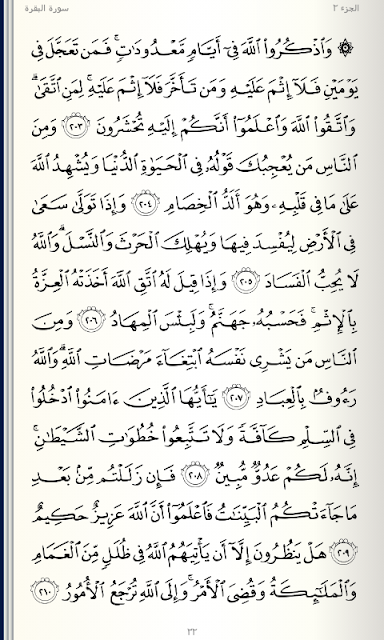 الجزء ٢
سورة البقرة
۞ وَٱذْكُرُوا۟ ٱللَّهَ فِىٓ أَيَّامٍ مَّعْدُودَٰتٍ ۚ فَمَن تَعَجَّلَ فِى
يَوْمَيْنِ فَلَآ إِثْمَ عَلَيْهِ وَمَن تَأَخَّرَ فَلَآ إِثْمَ عَلَيْهِ ۚ لِمَنِ ٱتَّقَىٰ ۗ
وَٱتَّقُوا۟ ٱللَّهَ وَٱعْلَمُوٓا۟ أَنَّكُمْ إِلَيْهِ تُحْشَرُونَ ٢٠٣ وَمِنَ
ٱلنَّاسِ مَن يُعْجِبُكَ قَوْلُهُۥ فِى ٱلْحَيَوٰةِ ٱلدُّنْيَا وَيُشْهِدُ ٱللَّهَ
عَلَىٰ مَا فِى قَلْبِهِۦ وَهُوَ أَلَدُّ ٱلْخِصَامِ ٢٠٤ وَإِذَا تَوَلَّىٰ سَعَىٰ
فِى ٱلْأَرْضِ لِيُفْسِدَ فِيهَا وَيُهْلِكَ ٱلْحَرْثَ وَٱلنَّسْلَ ۗ وَٱللَّهُ
لَا يُحِبُّ ٱلْفَسَادَ ٢٠٥ وَإِذَا قِيلَ لَهُ ٱتَّقِ ٱللَّهَ أَخَذَتْهُ ٱلْعِزَّةُ
بِٱلْإِثْمِ ۚ فَحَسْبُهُۥ جَهَنَّمُ ۚ وَلَبِئْسَ ٱلْمِهَادُ ٢٠٦ وَمِنَ
ٱلنَّاسِ مَن يَشْرِى نَفْسَهُ ٱبْتِغَآءَ مَرْضَاتِ ٱللَّهِ ۗ وَٱللَّهُ
رَءُوفٌۢ بِٱلْعِبَادِ ٢٠٧ يَٰٓأَيُّهَا ٱلَّذِينَ ءَامَنُوا۟ ٱدْخُلُوا۟
فِى ٱلسِّلْمِ كَآفَّةً وَلَا تَتَّبِعُوا۟ خُطُوَٰتِ ٱلشَّيْطَٰنِ ۚ
إِنَّهُۥ لَكُمْ عَدُوٌّ مُّبِينٌ ٢٠٨ فَإِن زَلَلْتُم مِّنۢ بَعْدِ
مَا جَآءَتْكُمُ ٱلْبَيِّنَٰتُ فَٱعْلَمُوٓا۟ أَنَّ ٱللَّهَ عَزِيزٌ حَكِيمٌ
٢٠٩ هَلْ يَنظُرُونَ إِلَّآ أَن يَأْتِيَهُمُ ٱللَّهُ فِى ظُلَلٍ مِّنَ ٱلْغَمَامِ
وَٱلْمَلَٰٓئِكَةُ وَقُضِىَ ٱلْأَمْرُ ۚ وَإِلَى ٱللَّهِ تُرْجَعُ ٱلْأُمُورُ ٢١٠
٣٢